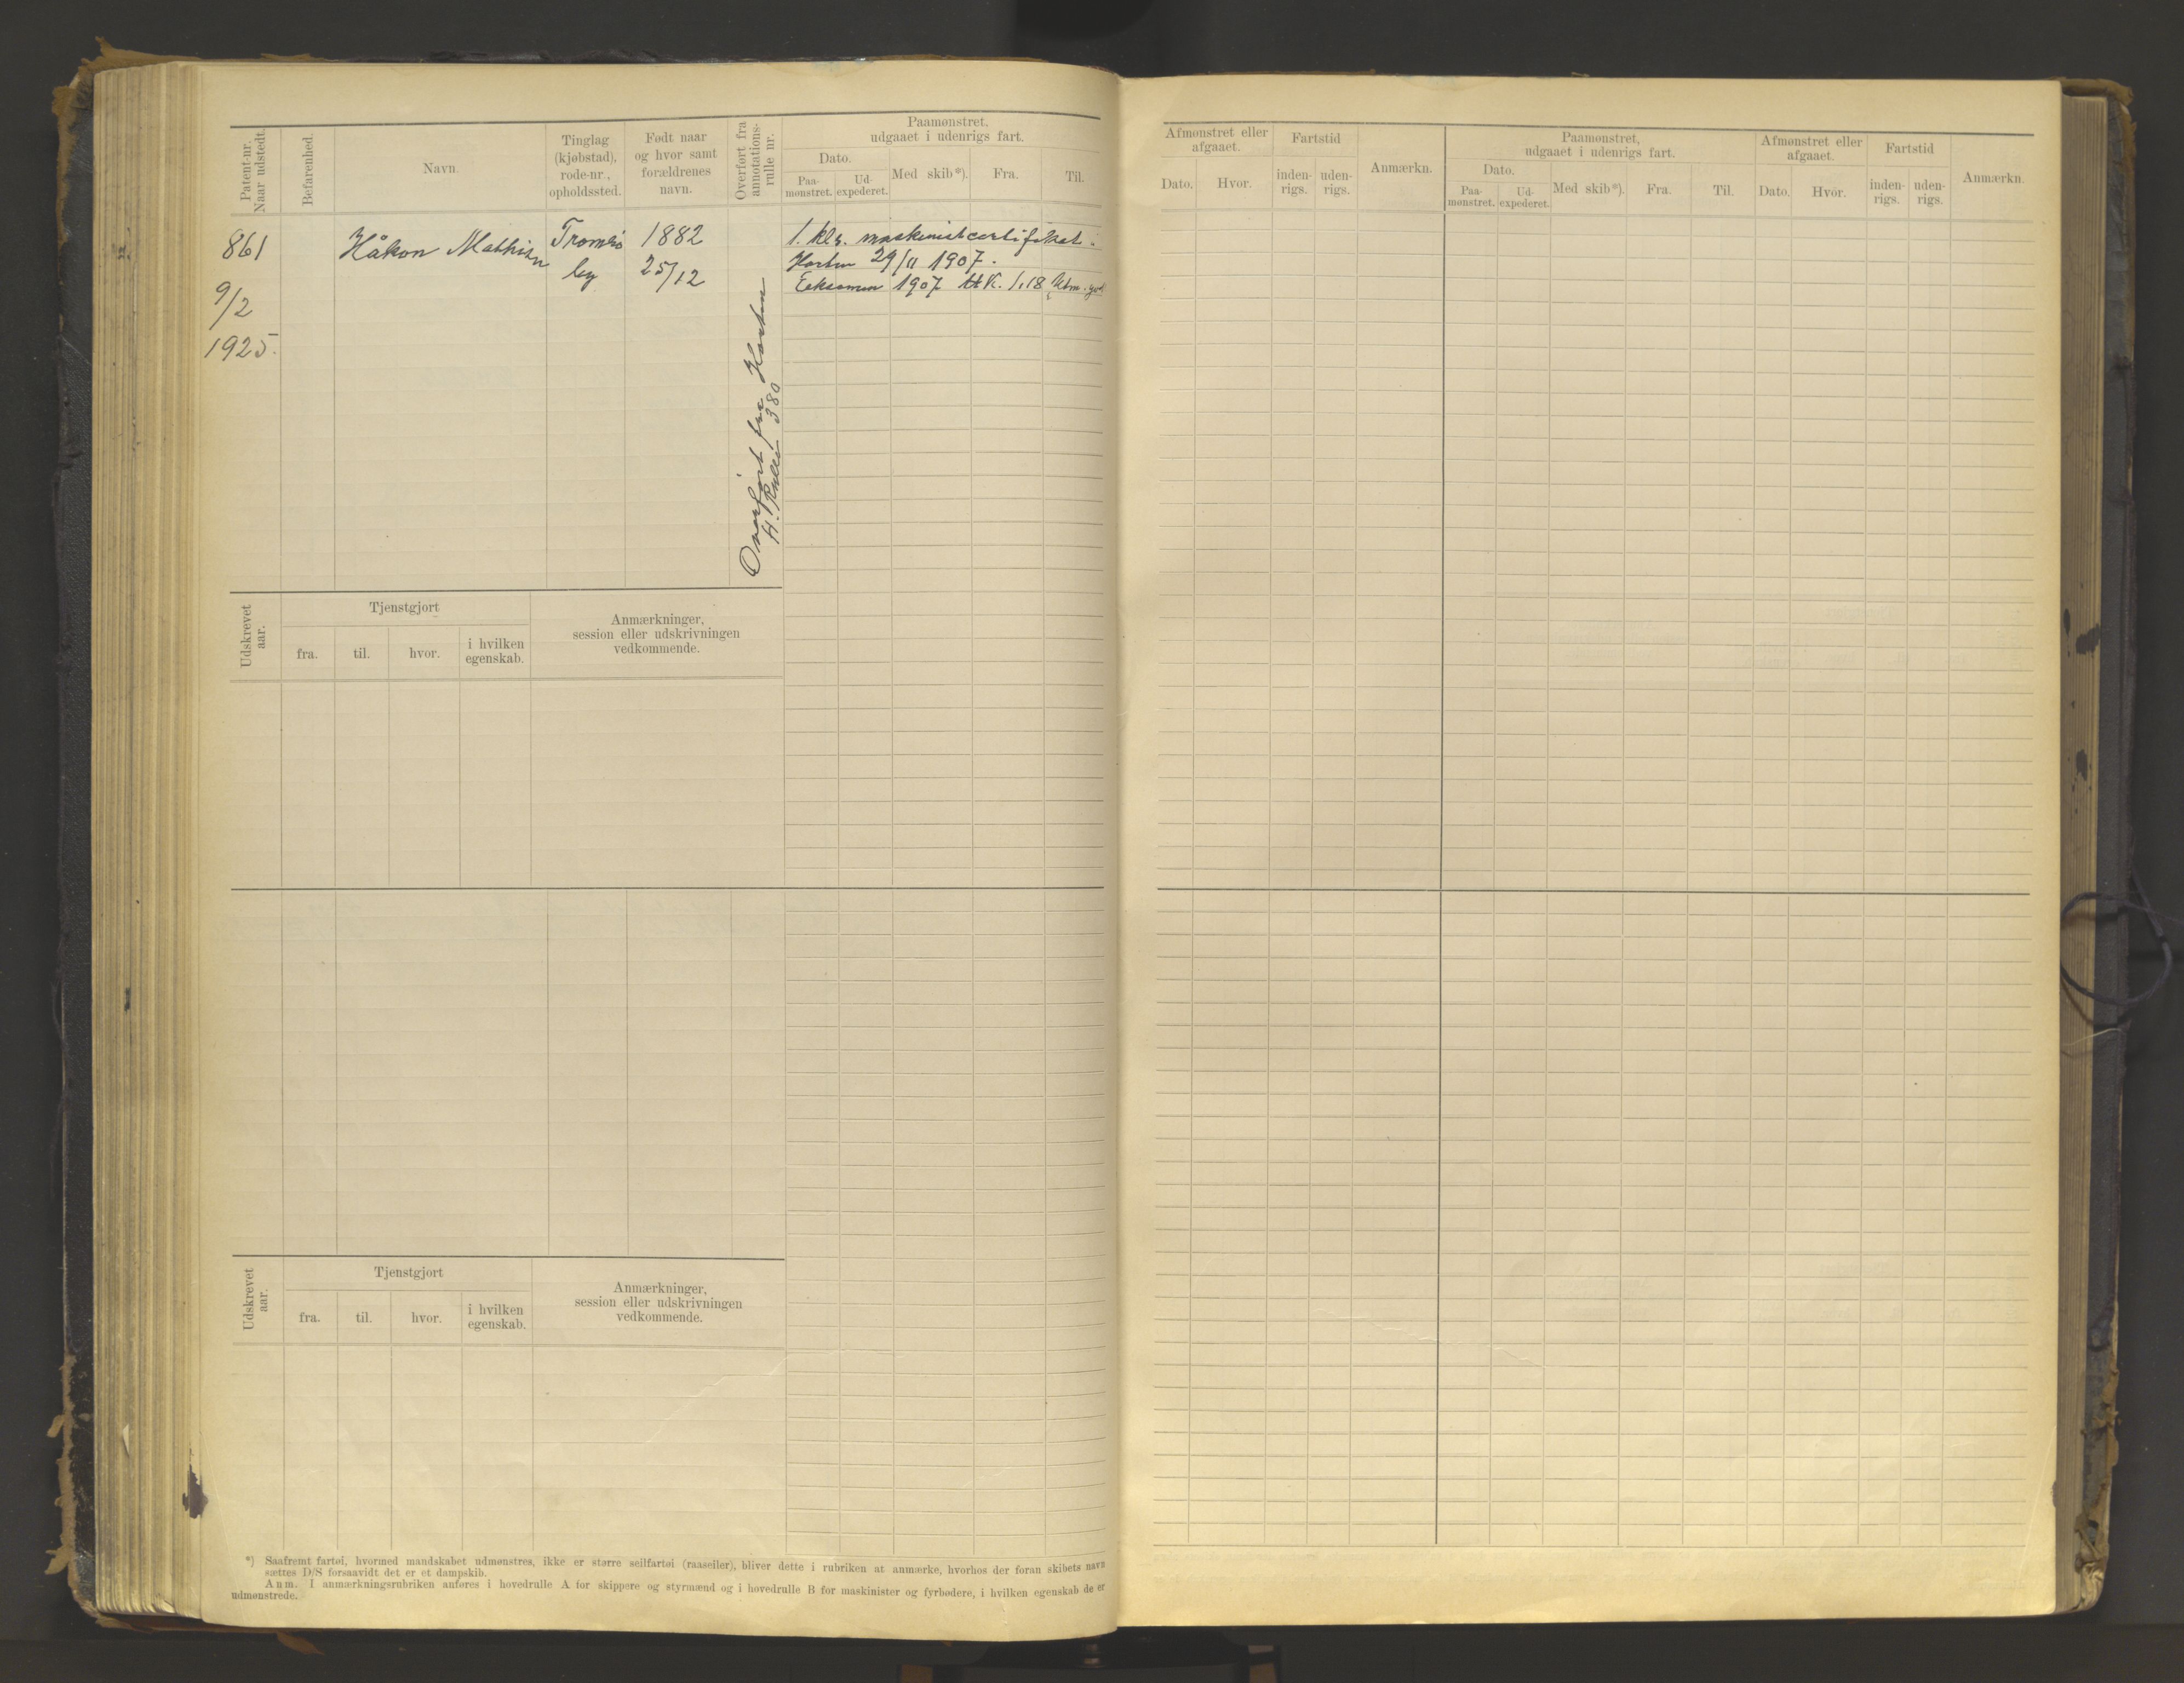 Patent-nr.
Naar udstedt.
Befarenhed.
Navn.
Tinglag
(kjøbstad),
rode-nr.,
opholdssted.
Født naar
og hvor samt
forældrenes
navn.
Overført fra
annotations-
rulle nr.
Paamønstret,
udgaaet i udenrigs fart.
Dato.
Paa-
mønstret.
Ud-
expederet.
Med skib*).
Fra.
Til.
861
9/2
1925.
Håkon Mathisen
Tromsø
by
1882
25/12
Overført fra Horten
H. Rulle 380
1. kls. maskinistcertifikat.
Horten 29/11 1907.
Eeksamen 1907
Udskrevet
aar.
Tjenstgjort
fra.
til.
hvor.
i hvilken
egenskab.
Anmærkninger,
session eller udskrivningen
vedkommende.
Udskrevet
aar.
Tjenstgjort
fra.
til.
hvor.
i hvilken
egenskab.
Anmærkninger,
session eller udskrivningen
vedkommende.
*) Saafremt fartøi, hvormed mandskabet udmønstres, ikke er større seilfartøi (raaseiler), bliver dette i rubriken at anmærke, hvorhos der foran skibets navn
sættes D/S forsaavidt det er et dampskib.
Anm. I anmærkningsrubriken anføres i hovedrulle A for skippere og styrmænd og i hovedrulle B for maskinister og fyrbødere, i hvilken egenskab de er
udmønstrede.
Afmønstret eller
afgaaet.
Dato.
Hvor.
Fartstid
inden-
rigs.
uden-
rigs.
Anmærkn.
Paamønstret,
udgaaet i udenrigs fart.
Dato.
Paa-
mønstret.
Ud-
expederet.
Med skib*).
Fra.
Til.
Afmønstret eller
afgaaet.
Dato.
Hvor.
Fartstid
inden-
rigs.
uden-
rigs.
Anmærkn.